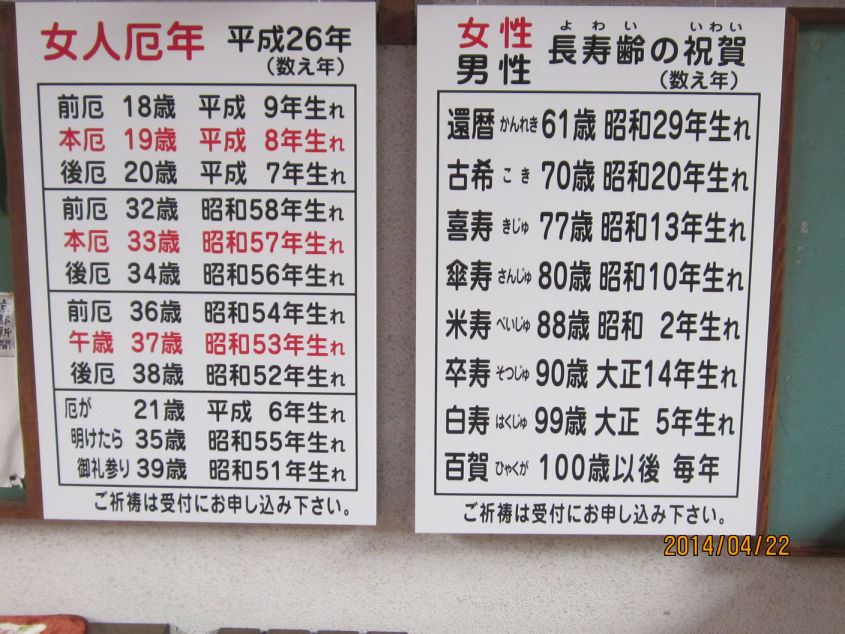 女人厄年 平成26年
(数え年)
前厄 18歳 平成 9年生れ
本厄 19歳 平成 8年生れ
後厄 20歳 平成 7年生れ
前厄 32歳 昭和58年生れ
本厄 33歳 昭和57年生れ
後厄 34歳 昭和56年生れ
前厄 36歳 昭和54年生れ
午歳 37歳 昭和53年生れ
後厄 38歳 昭和52年生れ
厄が 21歳 平成 6年生れ
明けたら 35歳 昭和55年生れ
御礼参り 39歳 昭和51年生れ
ご祈祷は受付にお申し込み下さい。
よわい いわい
女性 長寿齢の祝賀
男性 (数え年)
還暦 かんれき 61歳 昭和29年生れ
古希 こき 70歳 昭和20年生れ
喜寿 きじゅ 77歳 昭和13年生れ
傘寿 さんじゅ 80歳 昭和10年生れ
米寿 べいじゅ 88歳 昭和 2年生れ
卒寿 そつじゅ 90歳 大正14年生れ
白寿 はくじゅ 99歳 大正 5年生れ
百賀 ひゃくが 100歳以後 毎年
ご祈祷は受付にお申し込み下さい。
2014/04/22